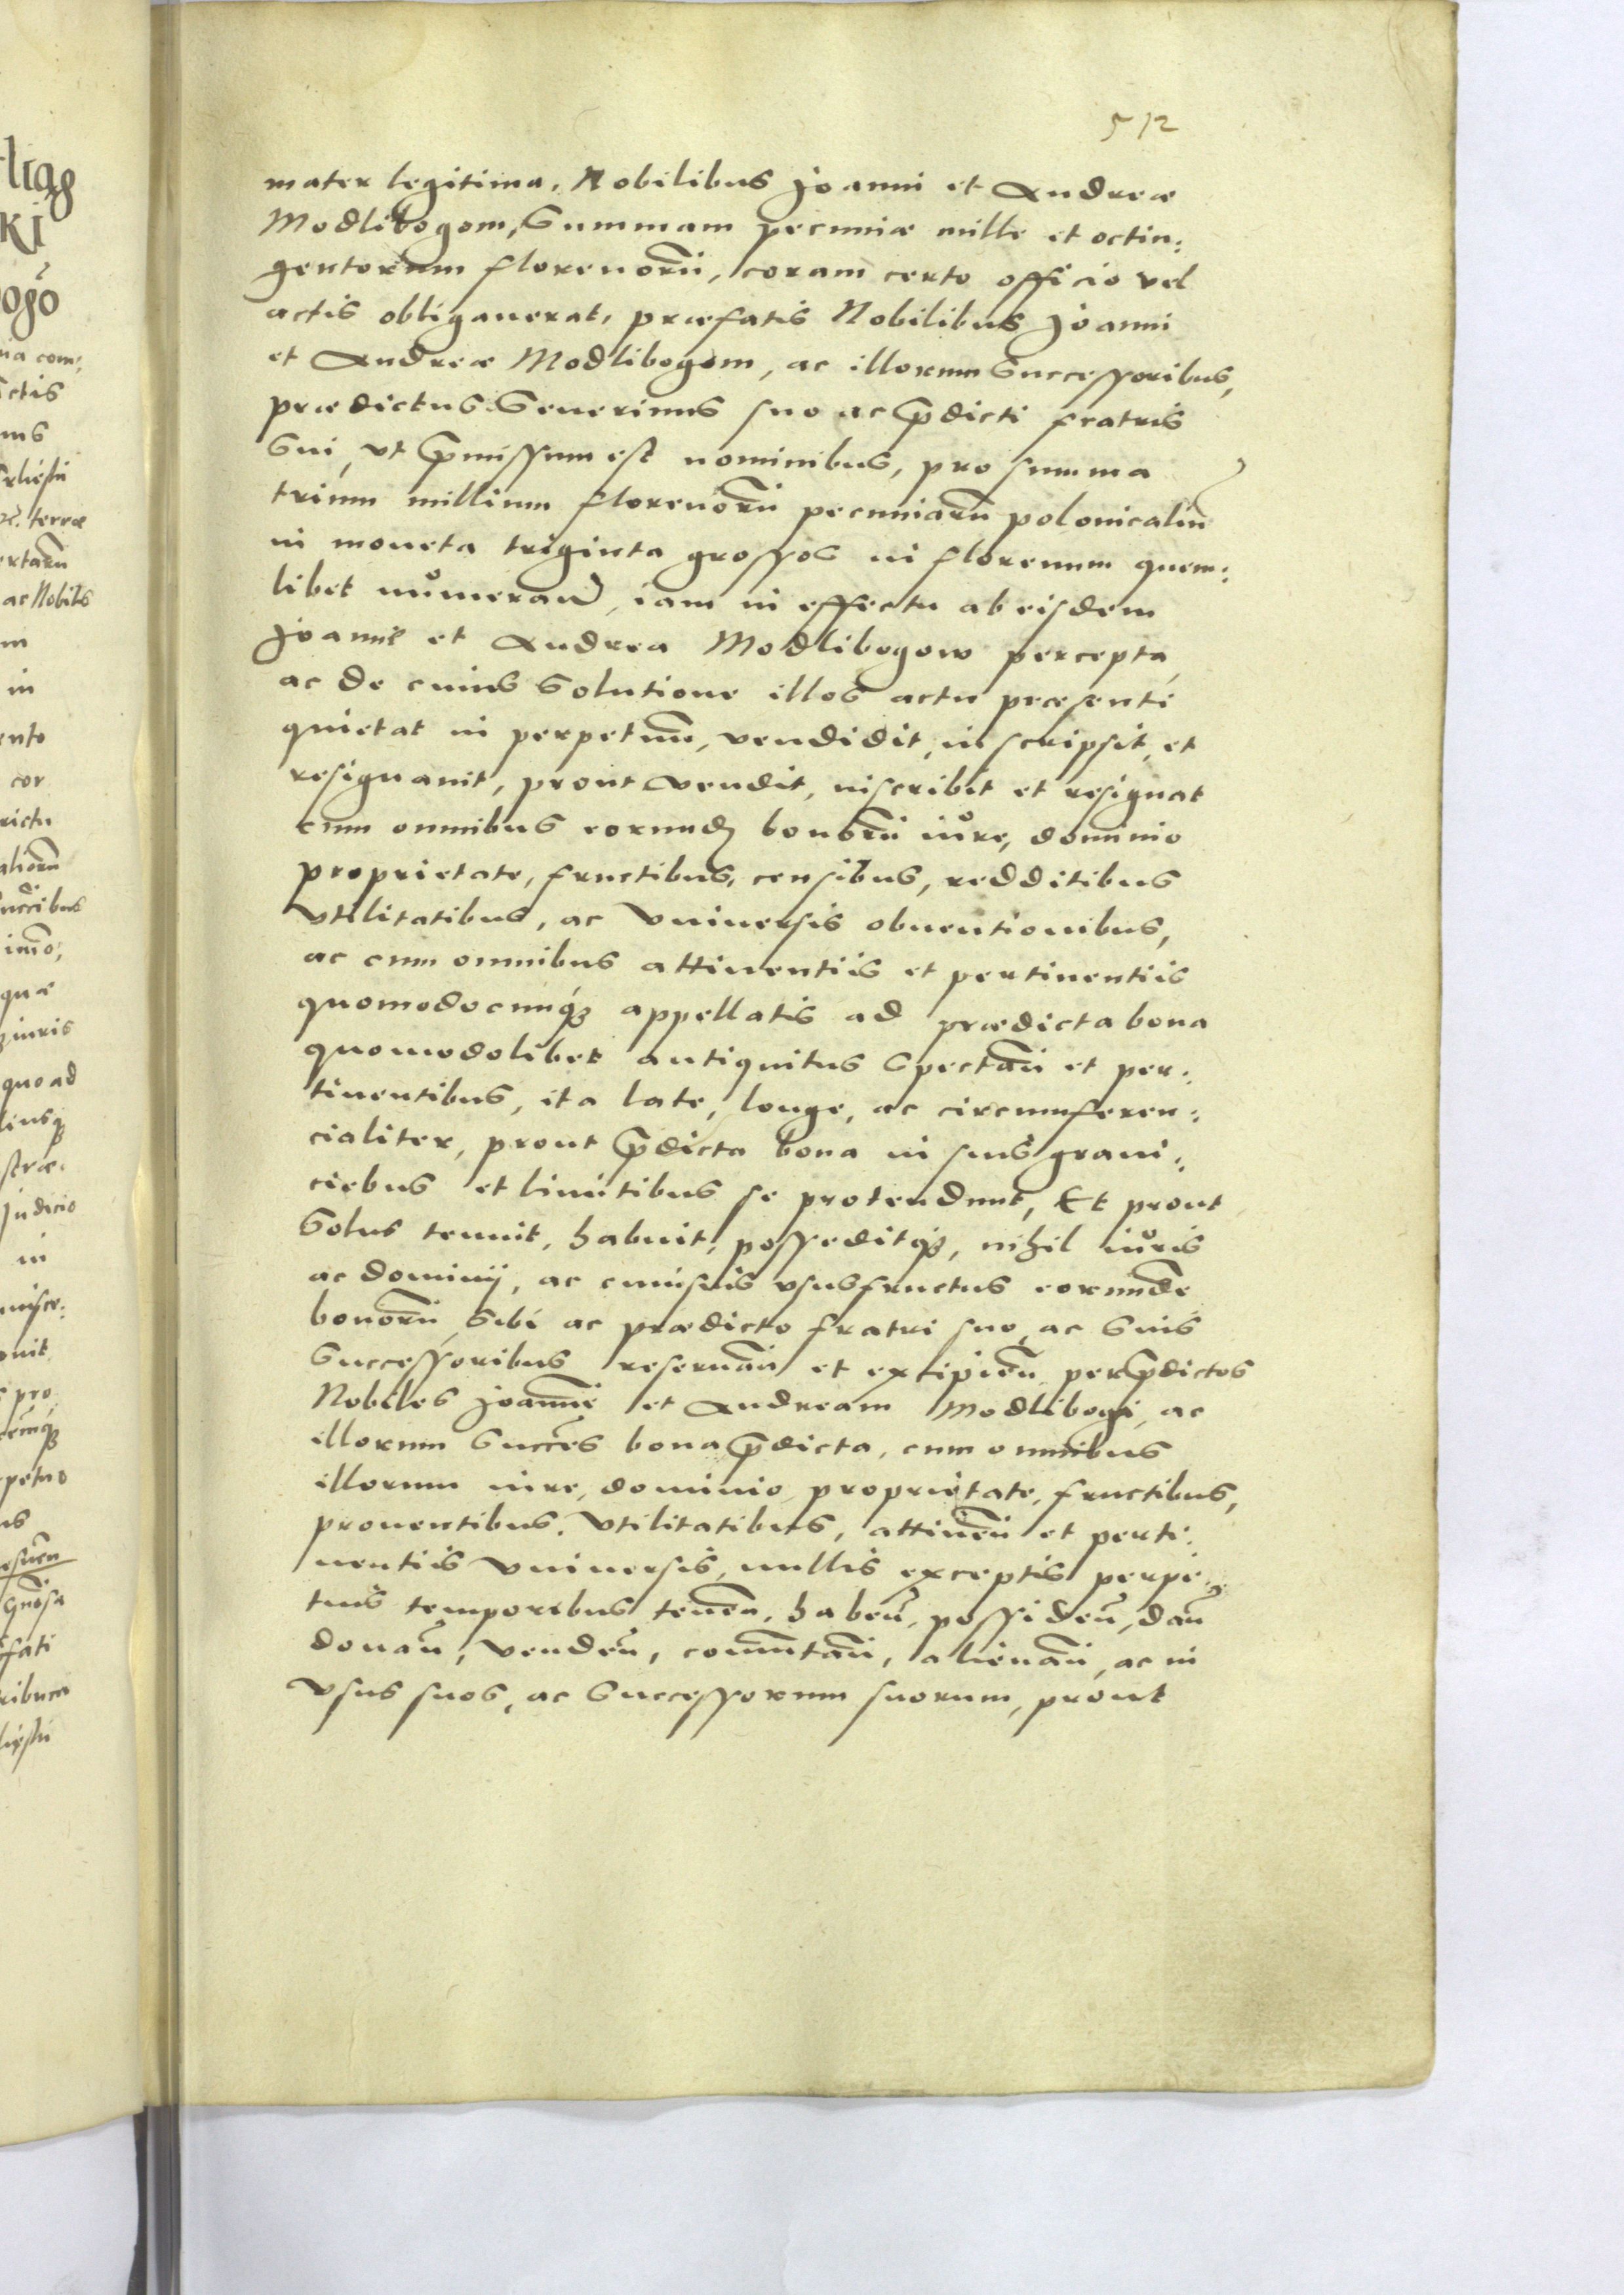 512
mater legitima, Nobilibus Joanni et Andreæ
Modlibogom, Summam pecuniæ mille et octin:
gentorum florenorũ, coram certo officio vel
actis obligauerat, præfatis Nobilibus Joanni
et Andreæ Modlibogom, ac illorum Successoribus,
prædictus Seuerinus suo ac p̃dicti fratris
Sui, vt p̃missum est nominibus, pro summa
trium millium florenorũ pecuniarũ polonicaliũ
in moneta triginta grossos in florenum quem:
libet nůmerañ, iam in effectu ab eisdem
Joanne et Andrea Modlibogow percepta,
ac de cuius Solutione illos actu præsenti
quietat in perpetuũ, vendidit, inscripsit, et
resignauit, prout vendit, inscribit et resignat
cum omnibus eorund bonorũ iůre, dominio
proprietate, fructibus, censibus, redditibus
vtilitatibus, ac vniuersis obuentionibus,
ac cum omnibus attinentiis et pertinentiis
quomodocunq̃ appellatis ad prædicta bona
quomodolibet antiquitus Spectañ et per:
tinentibus, ita late, longe, ac circumferen:
cialiter, prout p̃dicta bona in suis grani:
ciebus et limitibus se protendunt, Et prout
Solus tenuit, habuit, posseditq̃, nihil iůris
ac dominij, ac cuiusuis vsusfructus eorundẽ
bonorũ, Sibi ac prædicto fratri suo, ac Suis
Successoribus reseruañ et excipieñ, per p̃dictos
Nobiles Joannẽ et Andream Modlibogi, ac
illorum Succẽs bona p̃dicta, cum omnibus
illorum iure, dominio, proprietate, fructibus,
prouentibus, vtilitatibus, attineñ et perti:
nentiis vniuersis, nullis exceptis, perpe:
tuis temporibus teneñ, habeñ, possideñ, dañ
donañ, vendeñ, com̃utañ, alienañ, ac in
vsus suos, ac Successorum suorum, prout